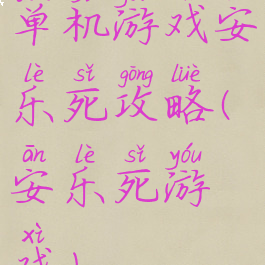 单机游戏安
lè sǐ gōng lüè
乐死攻略(
ān lè sǐ yóu
安乐死游
xì
戏)